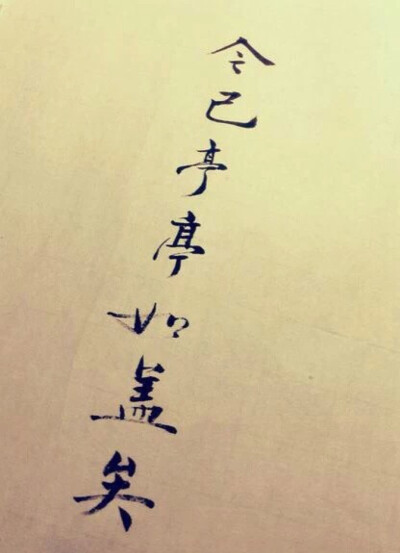 今已亭亭如盖矣